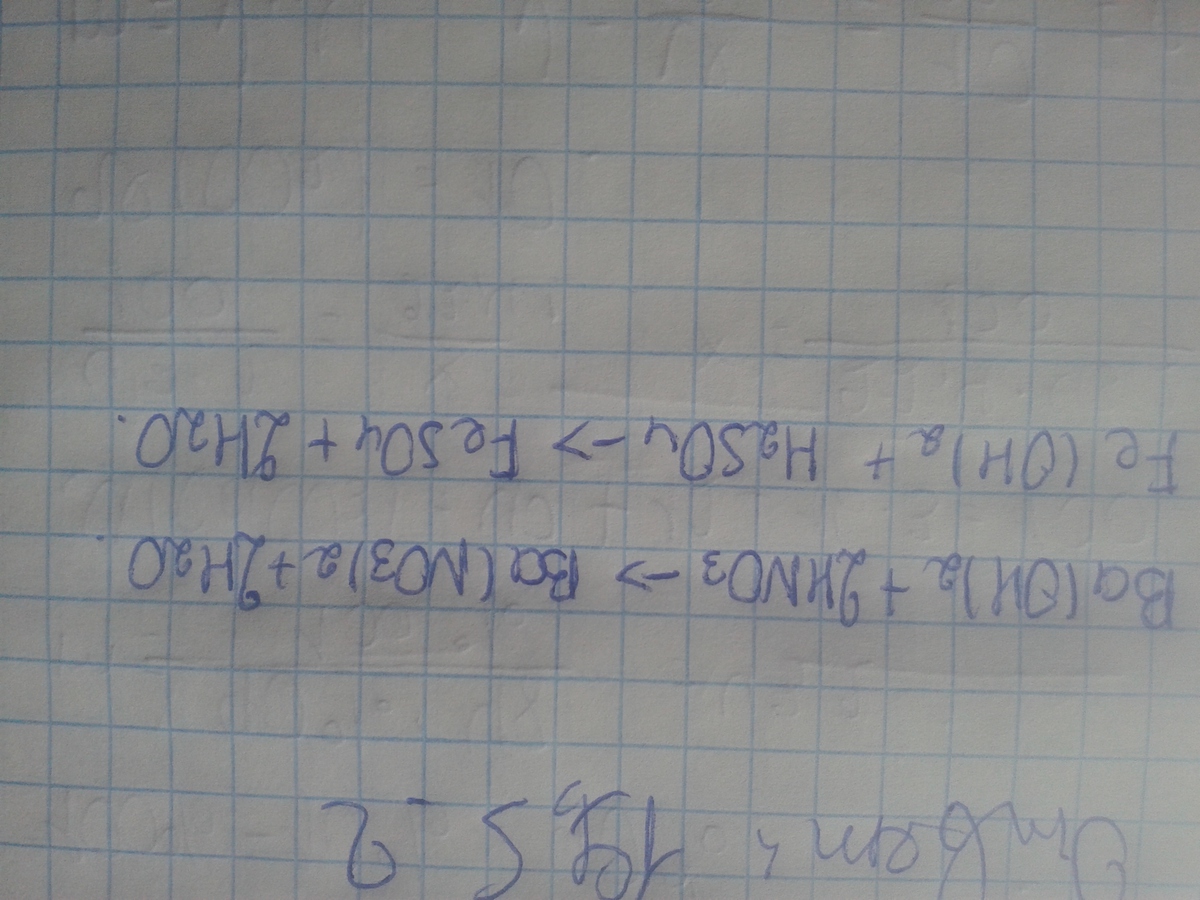 Ba(OH)2 + 2HNO3 -> Ba(NO3)2 + 2H2O.
Fe(OH)2 + H2SO4 -> FeSO4 + 2H2O.